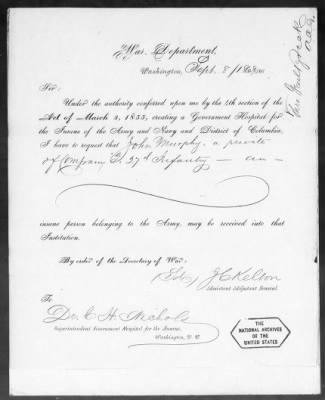 War Department,
Washington, Sept. 8
Sir:
Under the authority conferred upon me by the 4th section of the
Act of March 3, 1855, creating a Government Hospital for
the Insane of the Army and Navy and District of Columbia,
I have to request that John Murphy, a private
of Company 27th Infantry — an —
insane person belonging to the Army, may be received into that
Institution.
By order of the Secretary of War:
J C Kelton
Assistant Adjutant General.
To
Dr. C. H. Nichols
Superintendent Government Hospital for the Insane,
Washington, D. C.
THE
NATIONAL ARCHIVES
OF THE
UNITED STATES